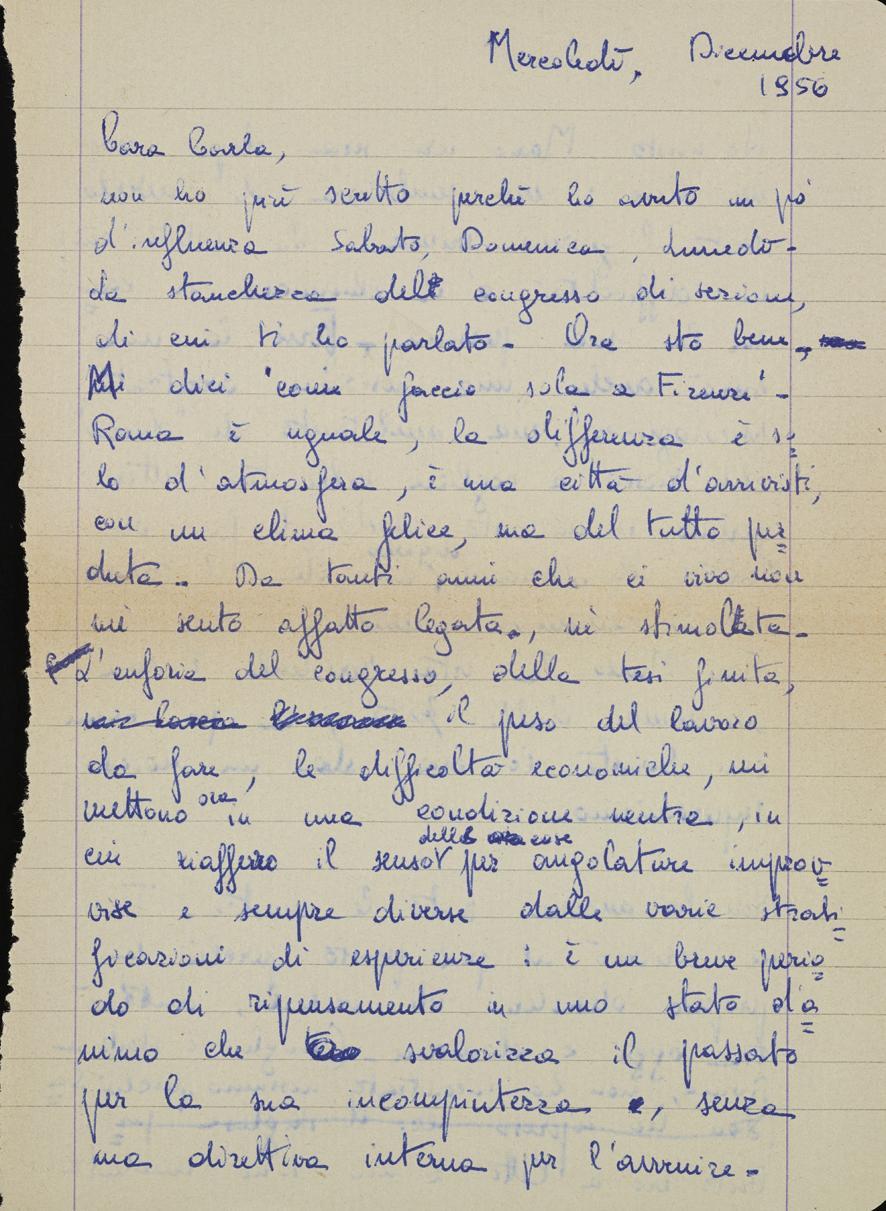 Mercoledì, Dicembre
1956
Cara Carla,
non ho più scritto perchè ho avuto un pò
d'influenza Sabato, Domenica, Lunedì -
La stanchezza del congresso di sezione,
di cui ti ho parlato - Ora sto bene,
Mi dici "come faccio sola a Firenze" -
Roma è uguale, la differenza è so
lo d'atmosfera, è una città d'arrivisti,
con un clima felice, ma del tutto per
duta - Da tanti anni che ci vivo non
mi sento affatto legata, nè stimolata -
L'euforia del congresso, della tesi finita,
il peso del lavoro
da fare, le difficoltà economiche, mi
mettono ora in una condizione neutra, in
delle cose
cui riafferro il senso per angolature improv
vise e sempre diverse dalle varie strati
ficazioni di esperienze: è un breve perio
do di ripensamento in uno stato d'a
nimo che svalorizza il passato
per la sua incompiutezza, senza
una direttiva interna per l'avvenire -